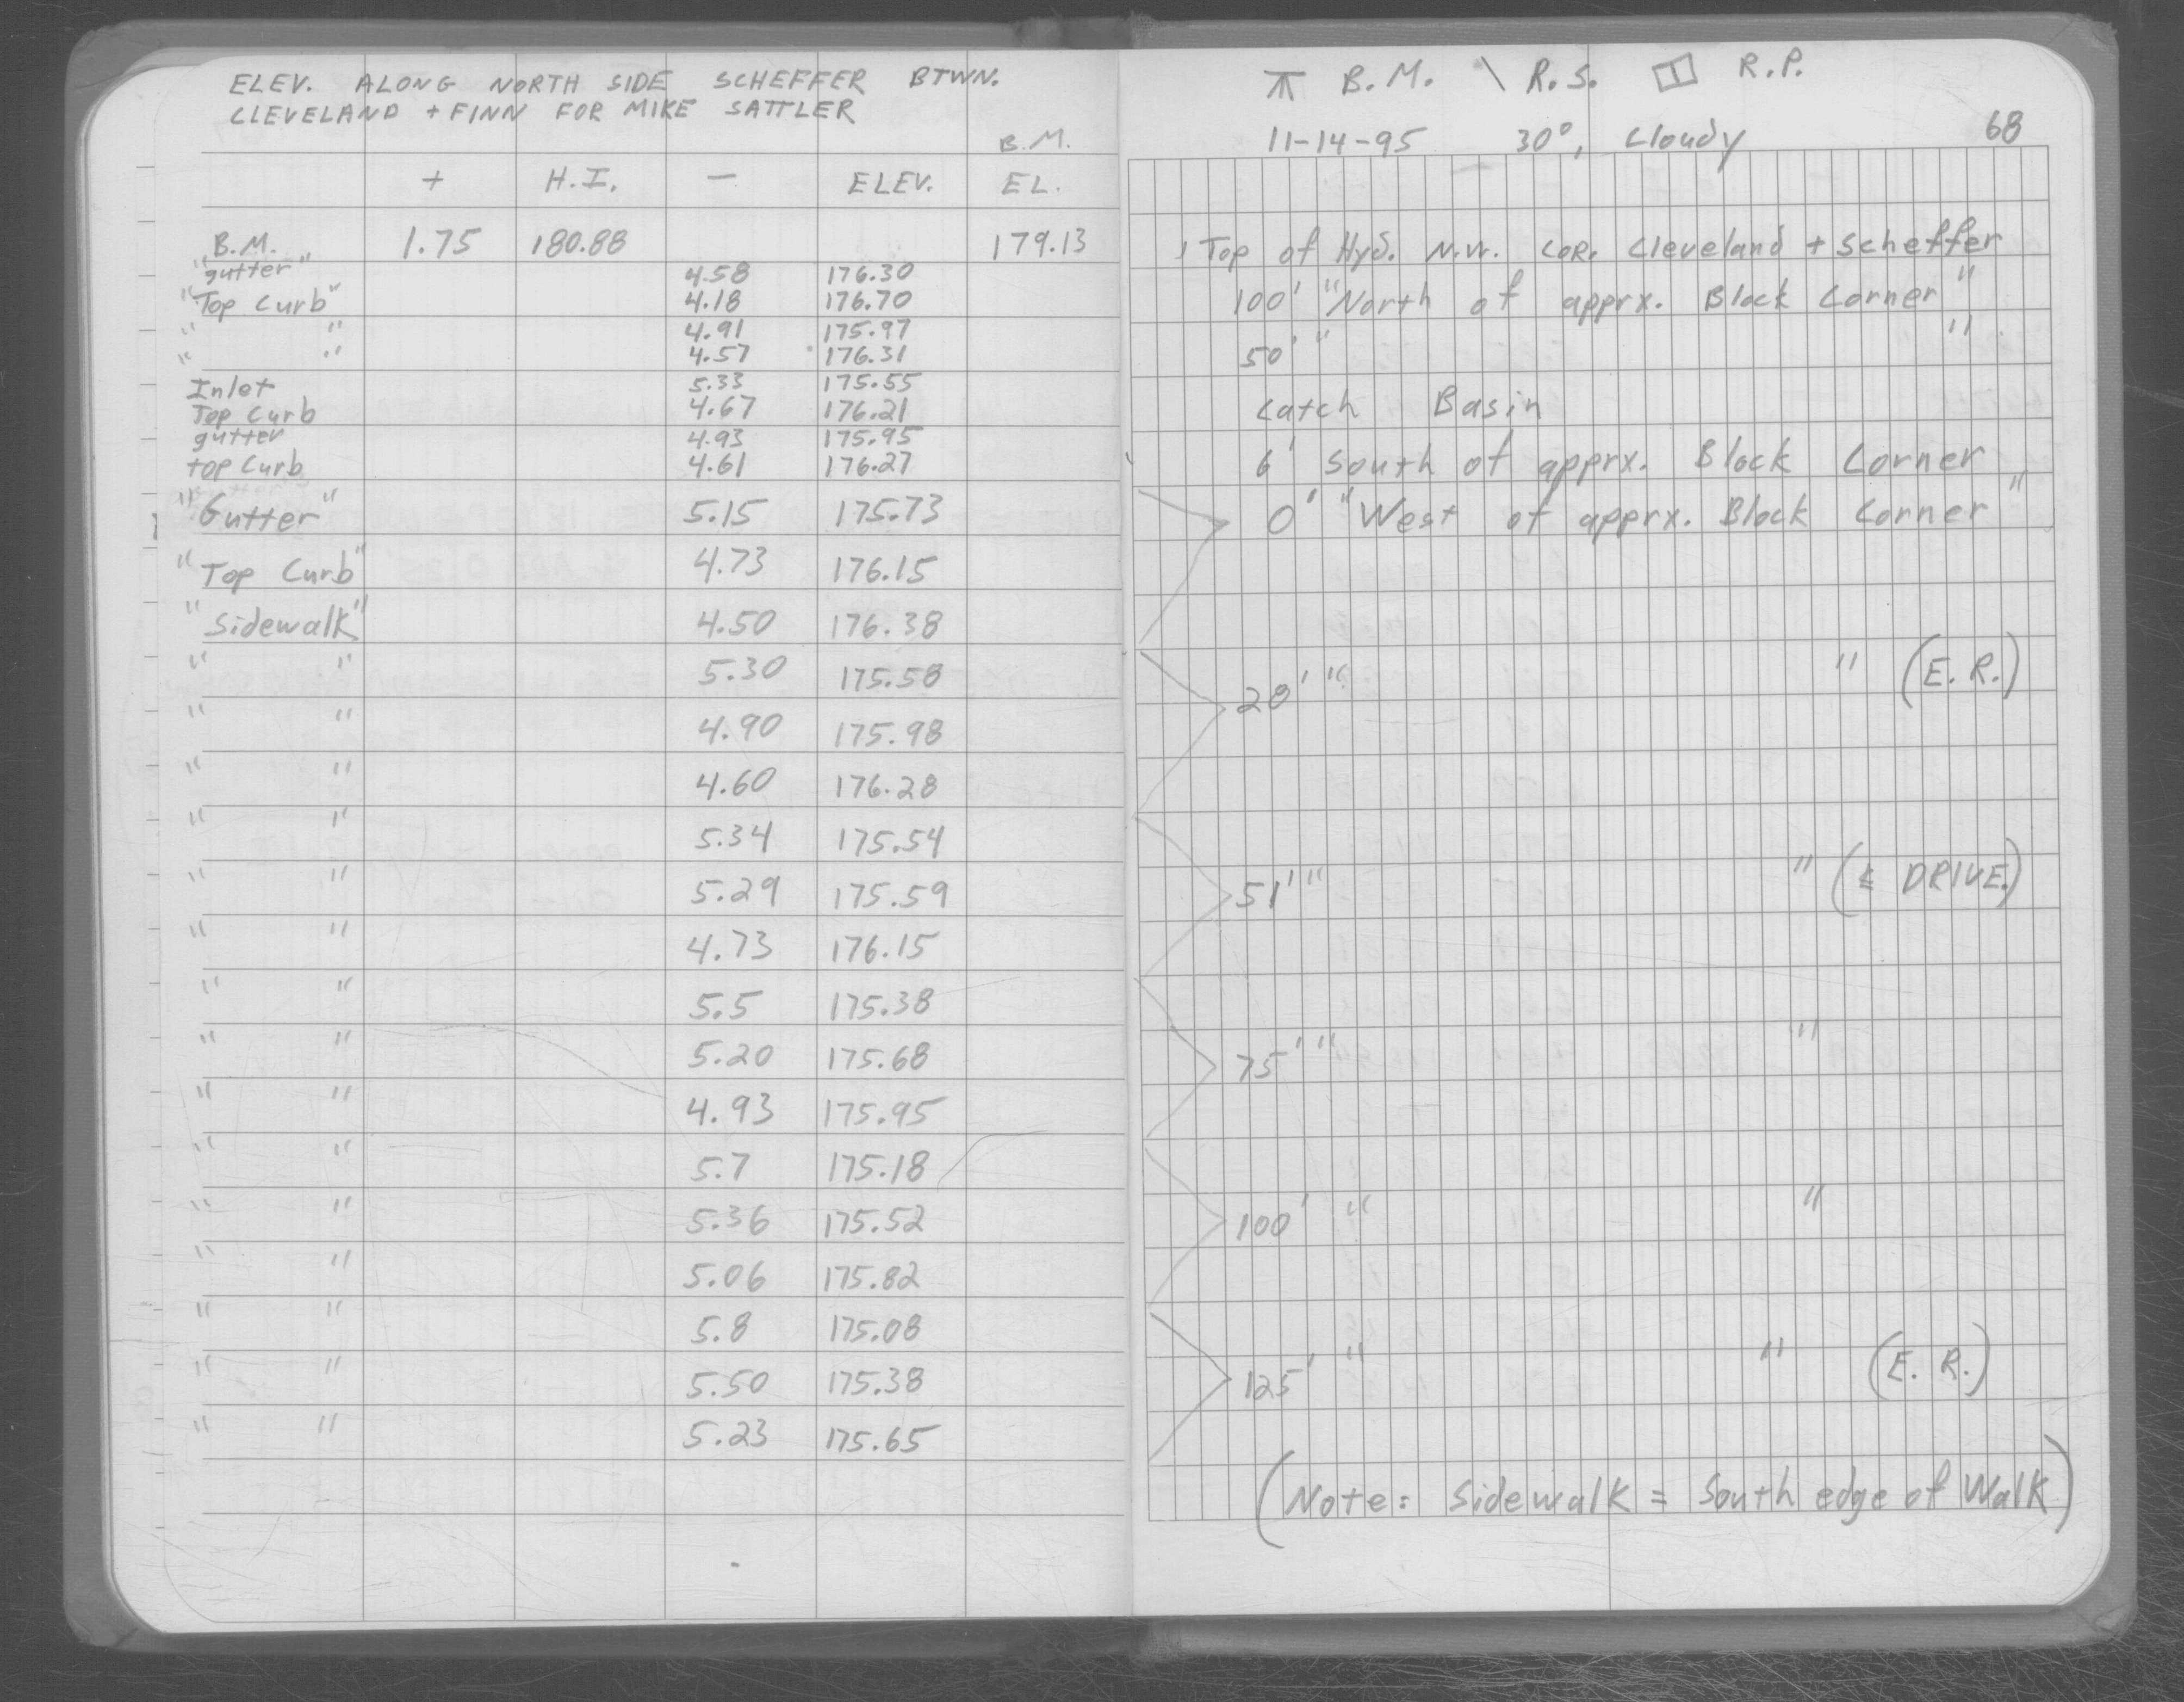 ELEV. ALONG NORTH SIDE SCHEFFER BTWN.
CLEVELAND + FINN FOR MIKE SATTLER
+ H.I. - ELEV. B.M. EL.
B.M. 1.75 180.88 179.13
"gutter" 4.58 176.30
"Top Curb" 4.18 176.70
" " 4.91 175.97
" " 4.57 176.31
Inlet 5.33 175.55
Top Curb 4.67 176.21
gutter 4.93 175.95
top Curb 4.61 176.27
"Gutter" 5.15 175.73
"Top Curb" 4.73 176.15
"Sidewalk" 4.50 176.38
" " 5.30 175.58
" " 4.90 175.98
" " 4.60 176.28
" " 5.34 175.54
" " 5.29 175.59
" " 4.73 176.15
" " 5.5 175.38
" " 5.20 175.68
" " 4.93 175.95
" " 5.7 175.18
" " 5.36 175.52
" " 5.06 175.82
" " 5.8 175.08
" " 5.50 175.38
" " 5.23 175.65
B.M. \ R.S. R.P.
11-14-95 30°, Cloudy 68
Top of Hyd. N.W. COR. Cleveland + Scheffer
100' "North of apprx. Block Corner"
50' " "
Catch Basin
6' South of apprx. Block Corner
0' "West of apprx. Block Corner"
20' " " (E.R.)
51' " " (℄ DRIVE)
75' " "
100' " "
125' " " (E.R.)
(Note: Sidewalk = South edge of Walk)